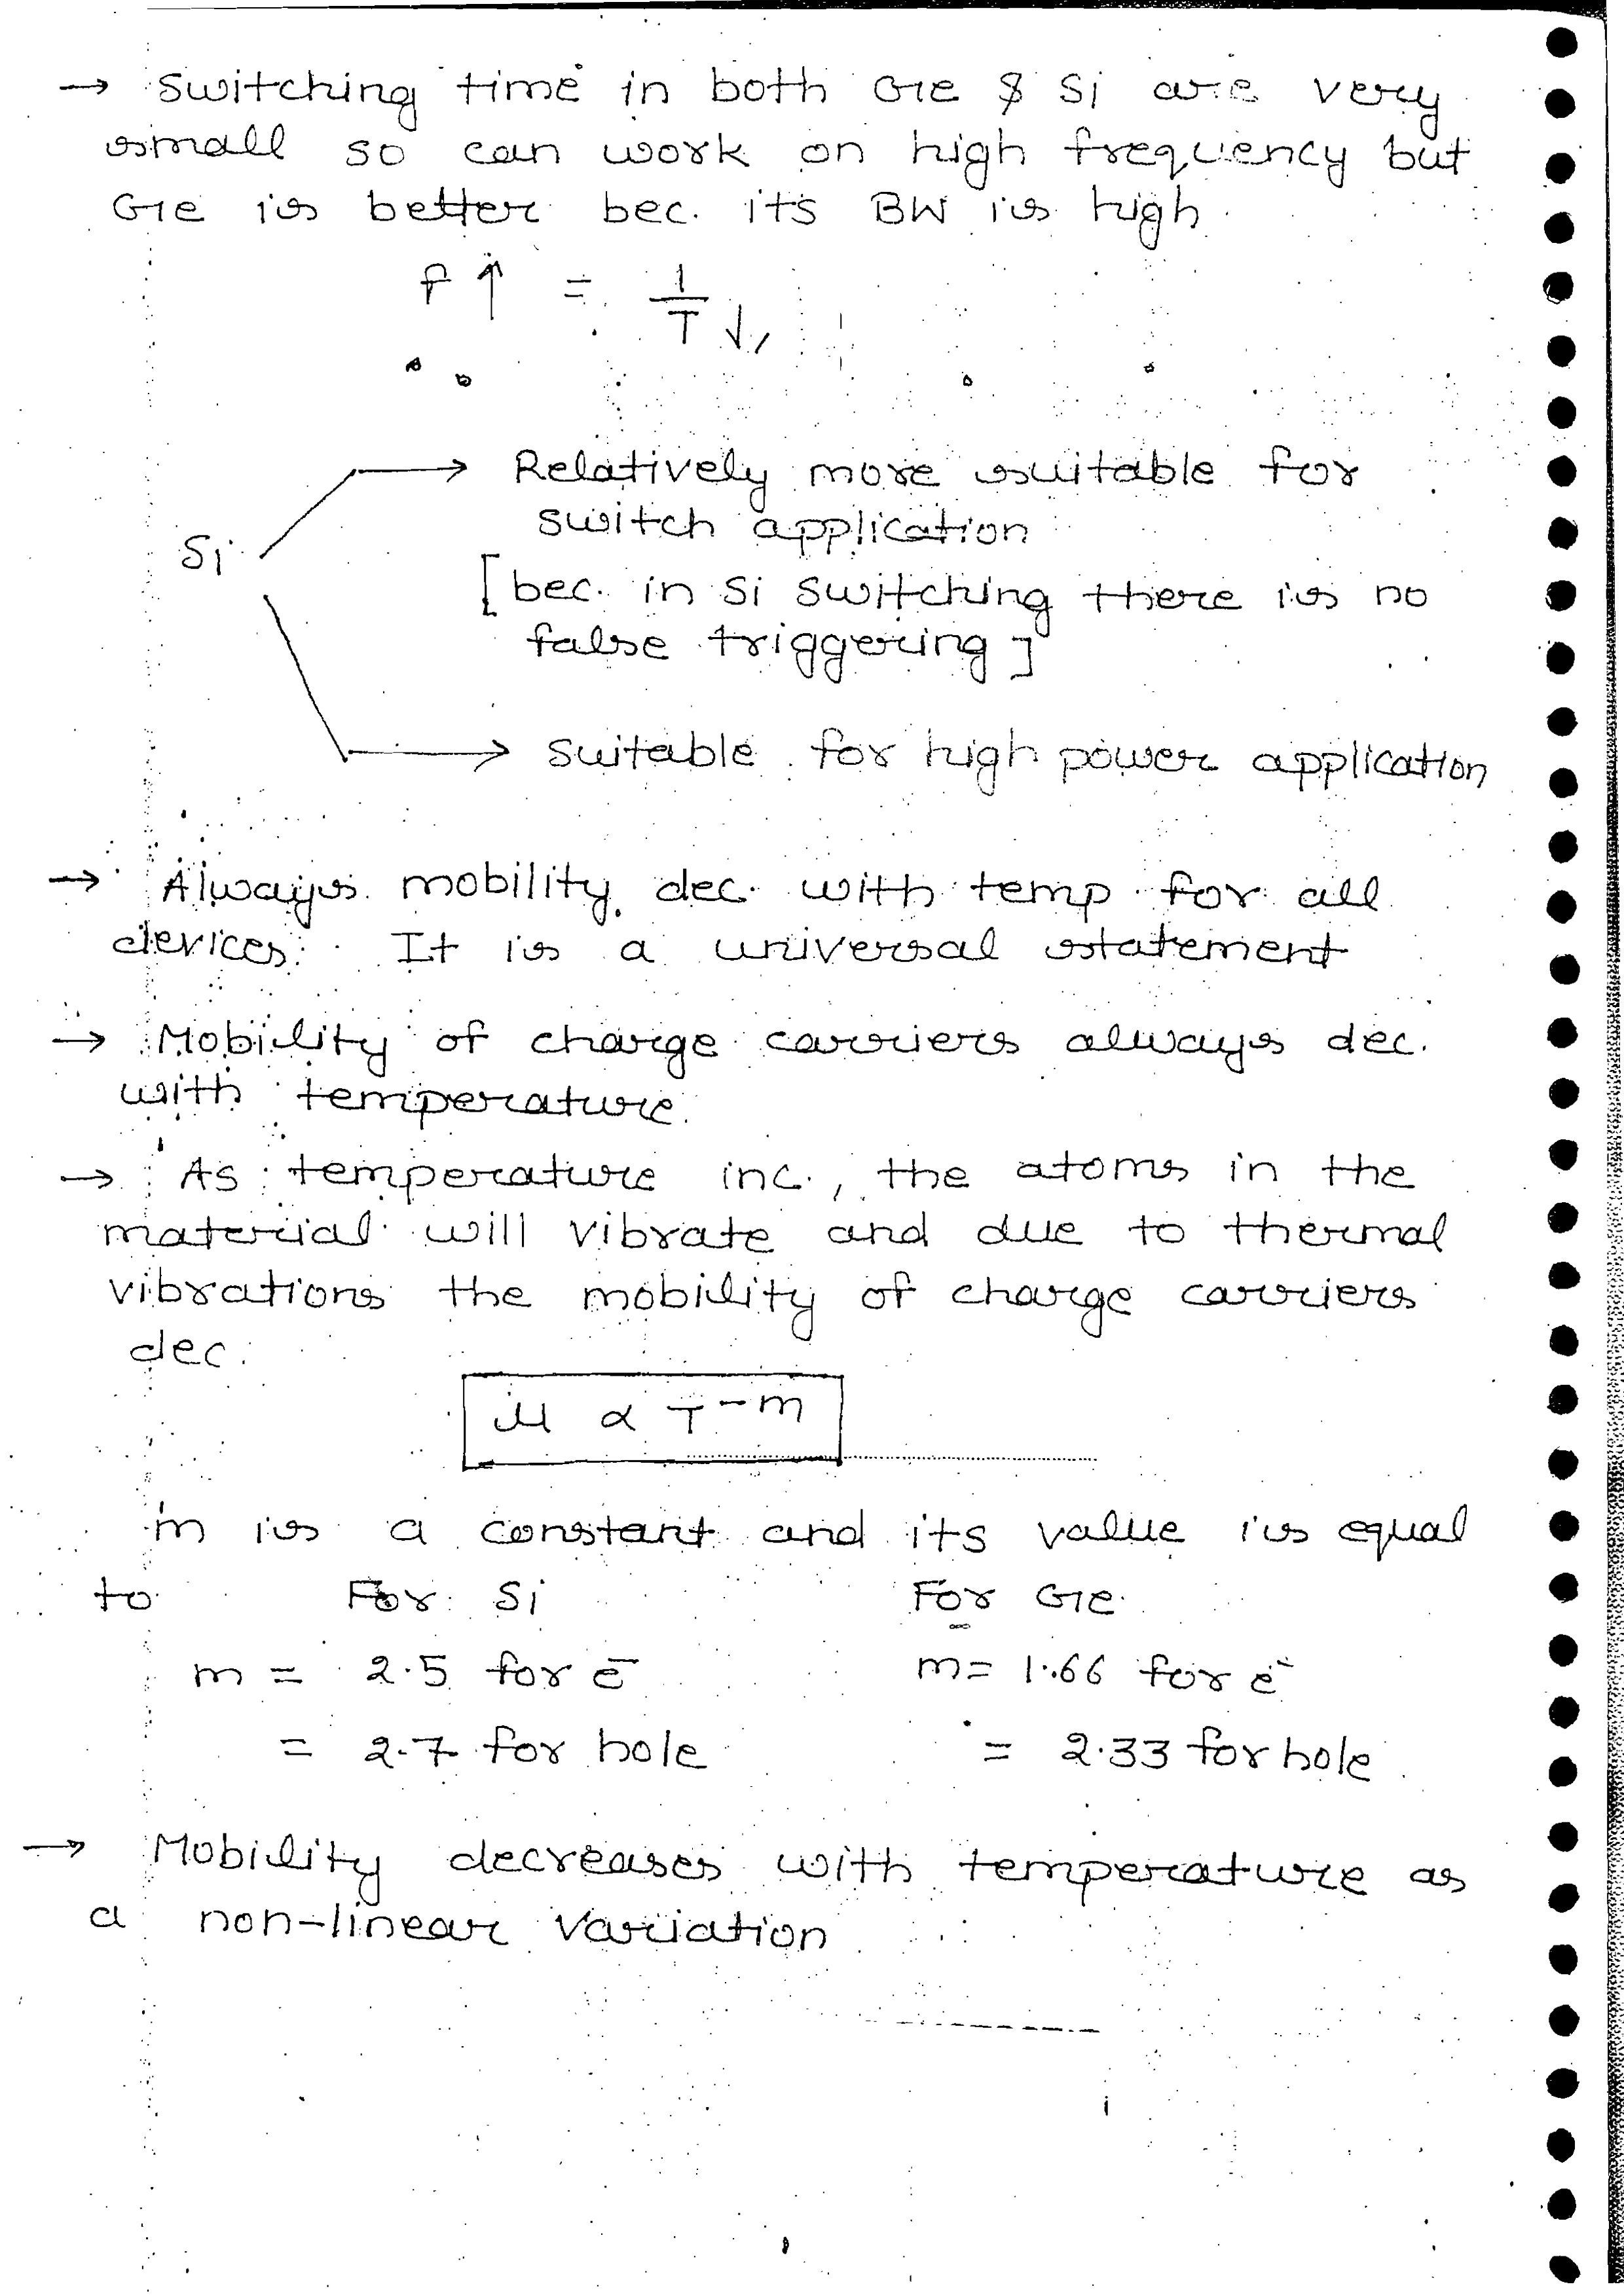 → Switching time in both Ge & Si are very
small so can work on high frequency but
Ge is better bec. its BW is high.
f↑ = 1/T↓
Si → Relatively more suitable for
switch application
[bec. in Si switching there is no
false triggering]
→ suitable for high power application
→ Always mobility dec. with temp for all
devices. It is a universal statement
→ Mobility of charge carriers always dec.
with temperature.
→ As temperature inc., the atoms in the
material will vibrate and due to thermal
vibrations the mobility of charge carriers
dec.
μ ∝ T⁻ᵐ
m is a constant and its value is equal
to For Si For Ge
m = 2.5 for e⁻ m = 1.66 for e⁻
= 2.7 for hole = 2.33 for hole
→ Mobility decreases with temperature as
a non-linear variation